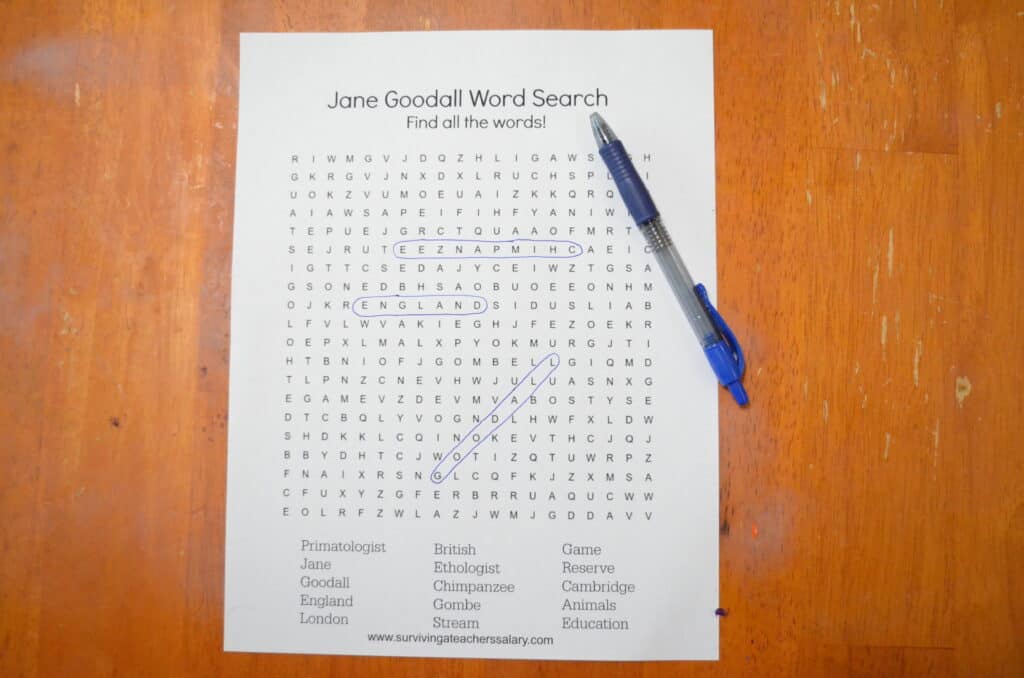 Jane Goodall Word Search
Find all the words!
R I W M G V J D Q Z H L I G A W S G H
G K R G V J N X D X L R U C H S P L I
U O K Z V U M O E U A I Z K K Q R Q
A I A W S A P E I F I H F Y A N I W
T E P U E J G R C T Q U A A O F M R T
S E J R U T E E Z N A P M I H C A E I C
I G T T C S E D A J Y C E I W Z T G S A
G S O N E D B H S A O B U O E E O N H M
O J K R E N G L A N D S I D U S L I A B
L F V L W V A K I E G H J F E Z O E K R
O E P X L M A L X P Y O K M U R G J T I
H T B N I O F J G O M B E L L G I Q M D
T L P N Z C N E V H W J U L U A S N X G
E G A M E V Z D E V M V A B O S T Y S E
D T C B Q L Y V O G N D L H W F X L D W
S H D K K L C Q I N O K E V T H C J Q J
B B Y D H T C J W O T I Z Q T U W R P Z
F N A I X R S N G L C Q F K J Z X M S A
C F U X Y Z G F E R B R R U A Q U C W W
E O L R F Z W L A Z J W M J G D D A V V
Primatologist
Jane
Goodall
England
London
British
Ethologist
Chimpanzee
Gombe
Stream
Game
Reserve
Cambridge
Animals
Education
www.survivingateacherssalary.com